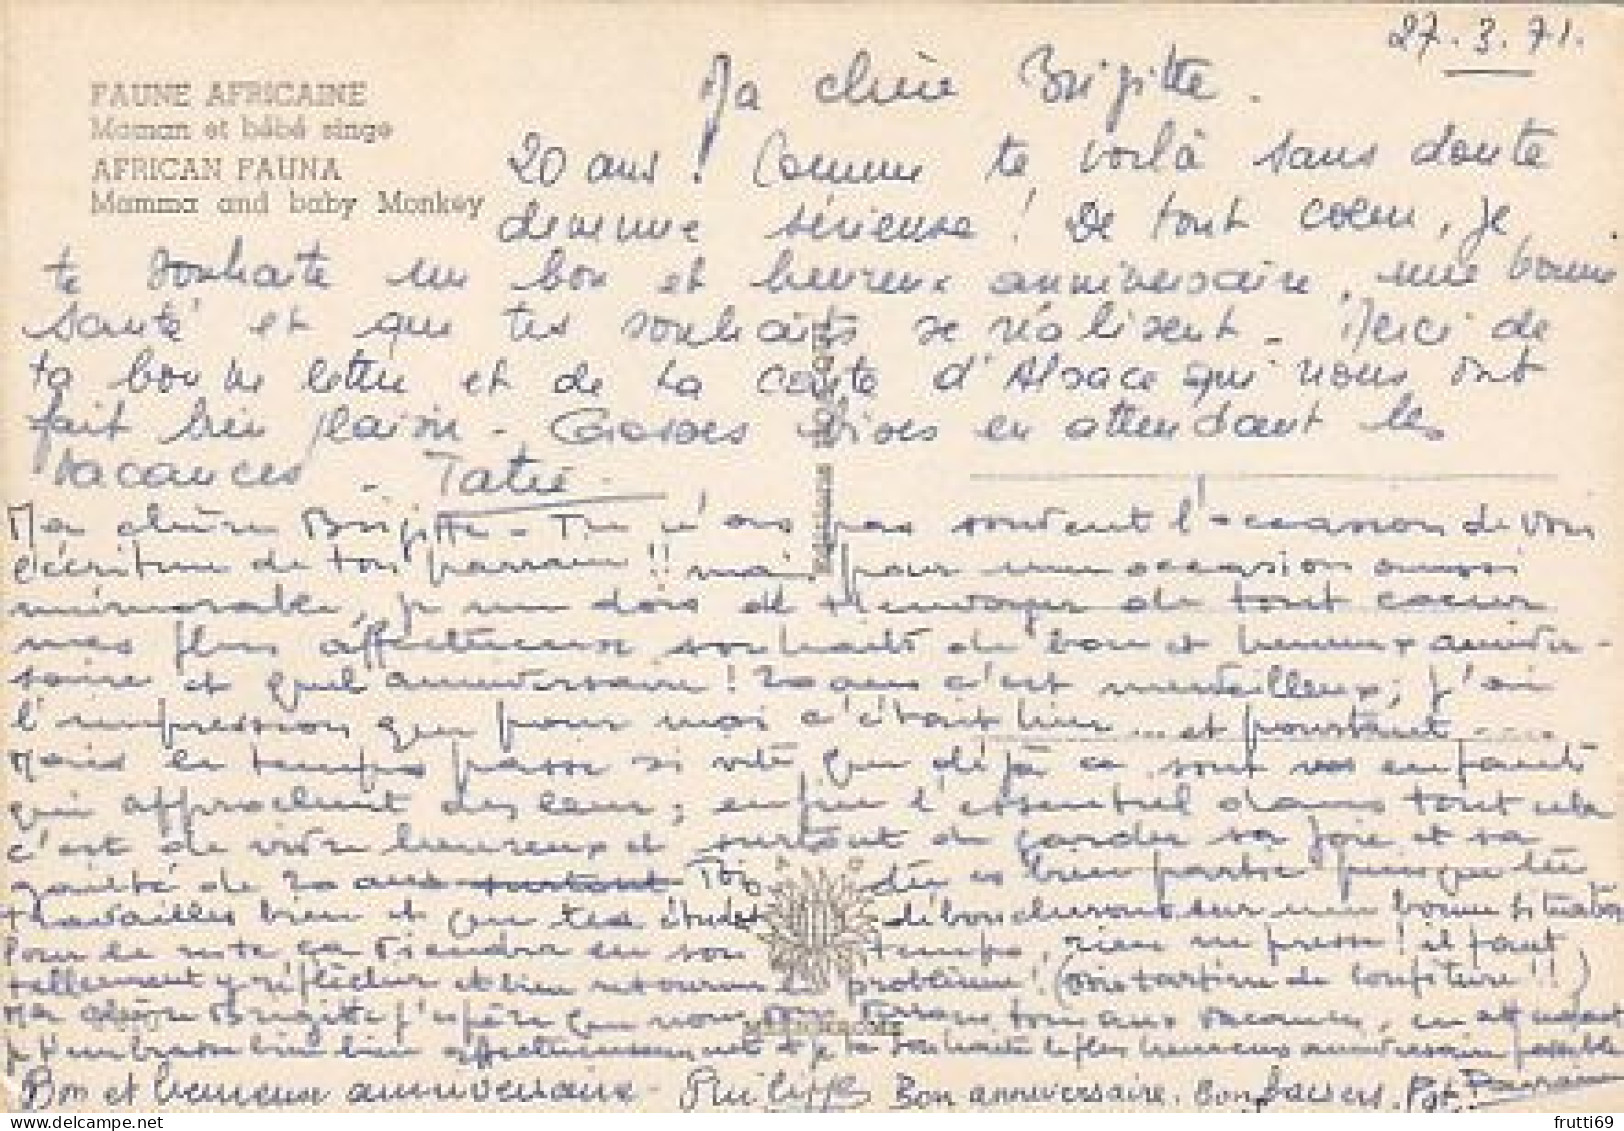 27.3.71.
FAUNE AFRICAINE
Maman et bébé singe
AFRICAN FAUNA
Mamma and baby Monkey
Ma chère Brigitte.
20 ans ! Comme te voilà sans doute
devenue sérieuse ! De tout coeur, je
te souhaite un bon et heureux anniversaire, une bonne
santé et que tes souhaits se réalisent - Merci de
ta bonne lettre et de la carte d'Alsace qui nous ont
fait bien plaisir - Grosses bises en attendant les
vacances - Tatie.
Ma chère Brigitte - Tu n'as pas souvent l'occasion de voir
l'écriture de ton parrain !! mais pour une occasion aussi
mémorable, je me dois de t'envoyer de tout coeur
mes plus affectueux souhaits de bon et heureux anniver-
saire et quel anniversaire ! 20 ans c'est merveilleux ; j'ai
l'impression que pour moi c'était hier ... et pourtant ...
Mais le temps passe si vite que déjà ce sont vos enfants
qui approchent des leurs ; enfin l'essentiel dans tout cela
c'est de vivre heureux et surtout de garder sa joie et sa
gaieté de 20 ans surtout Toi, tu es bien partie puisque tu
travailles bien et que tes études déboucheront sur une bonne situation
Pour le reste ça viendra en son temps, rien ne presse ! il faut
tellement y réfléchir et bien retourner le problème ! (une tartine de confiture !!)
Ma chère Brigitte j'espère que nous vous verrons tous aux vacances, en attendant
je t'embrasse bien bien affectueusement et je te souhaite le plus heureux anniversaire possible
Parrain
Bon et heureux anniversaire - Philippe Bon anniversaire. Bons baisers. Pat.
frutti69